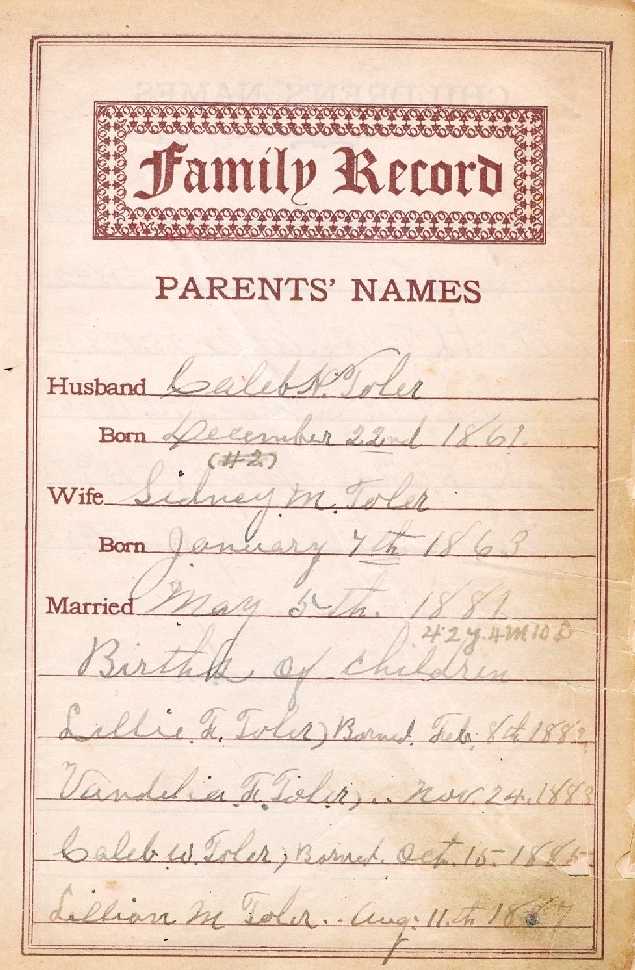 Family Record
PARENTS' NAMES
Husband Caleb H. Toler
Born December 22nd 1861
(#2)
Wife Sidney M. Toler
Born January 7th 1863
Married May 5th. 1881
42y. 4M 10D
Births of children
Lillie F. Toler, Borned. Feb. 8th 1882
Vandelia F. Toler, .. Nov. 24. 1883
Caleb W. Toler, Borned. Oct. 15- 1885
Lillian M Toler. .. Aug. 11th 1887